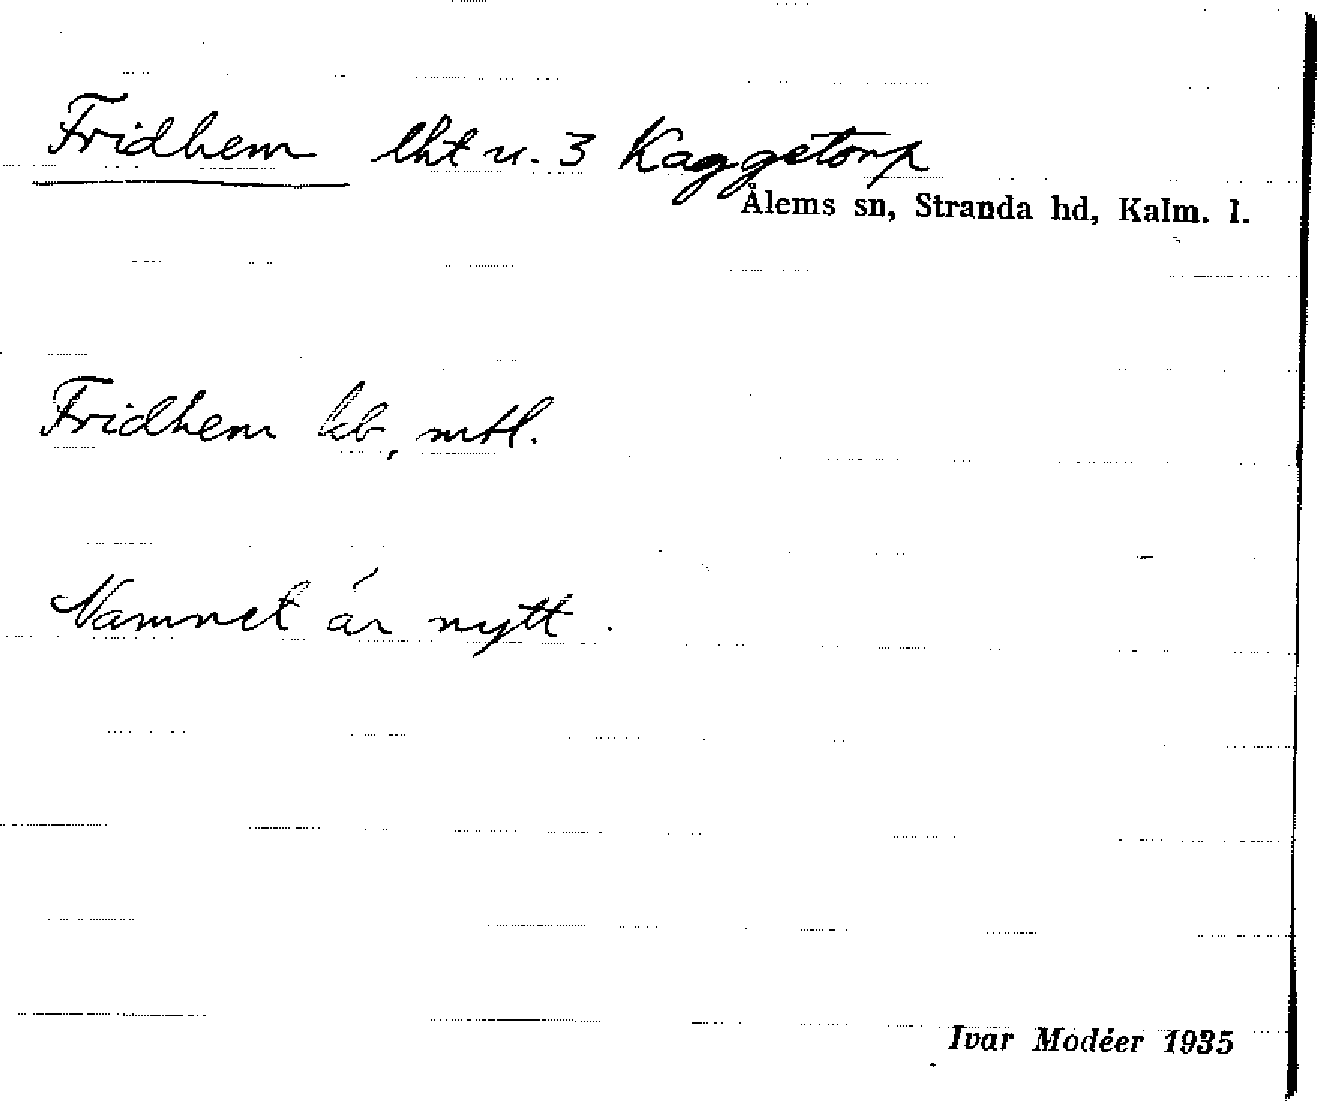 Fridhem lht u. 3 Kaggetorp
Ålems sn, Stranda hd, Kalm. l.
Fridhem kb, mtl.
Namnet är nytt.
Ivar Modéer 1935